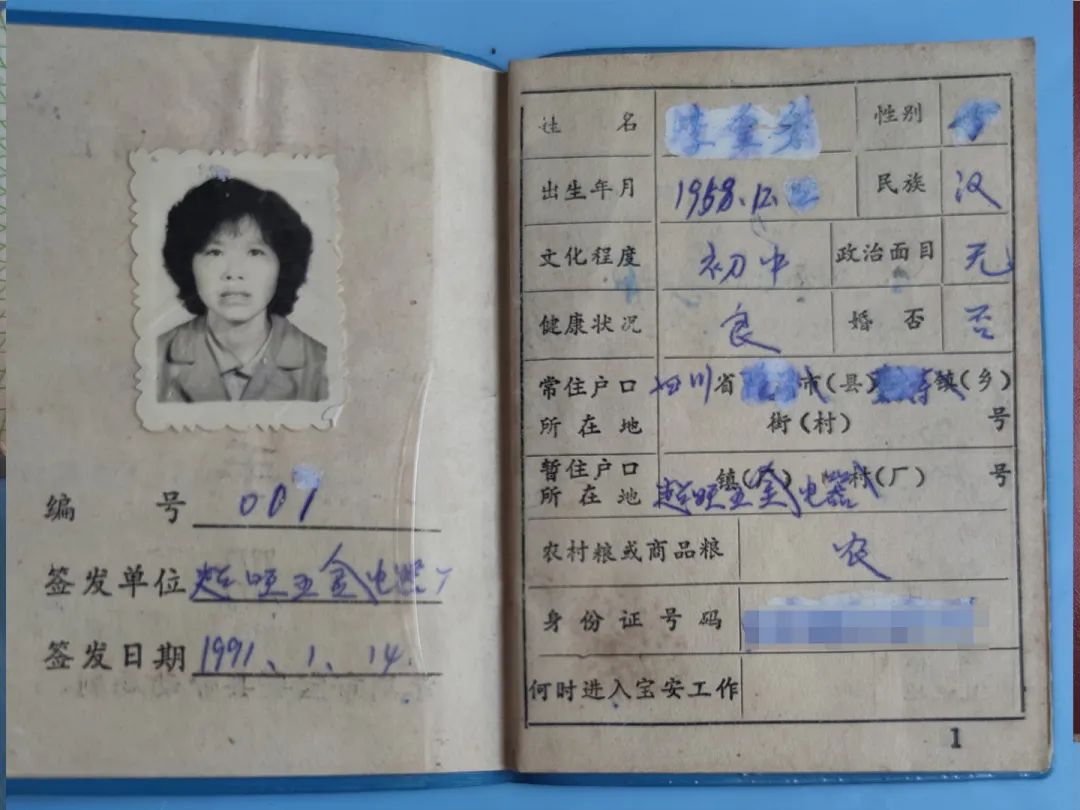 编 号 001
签发单位 超旺五金电器厂
签发日期 1991.1.14.
姓 名
性别
出生年月 1968.12.
民族 汉
文化程度 初中
政治面目 无
健康状况 良
婚否 否
常住户口 四川省 市(县) 镇(乡)
所在地 街(村) 号
暂住户口 镇( ) 村(厂) 号
所在地 超旺五金电器
农村粮或商品粮 农
身份证号码
何时进入宝安工作
1